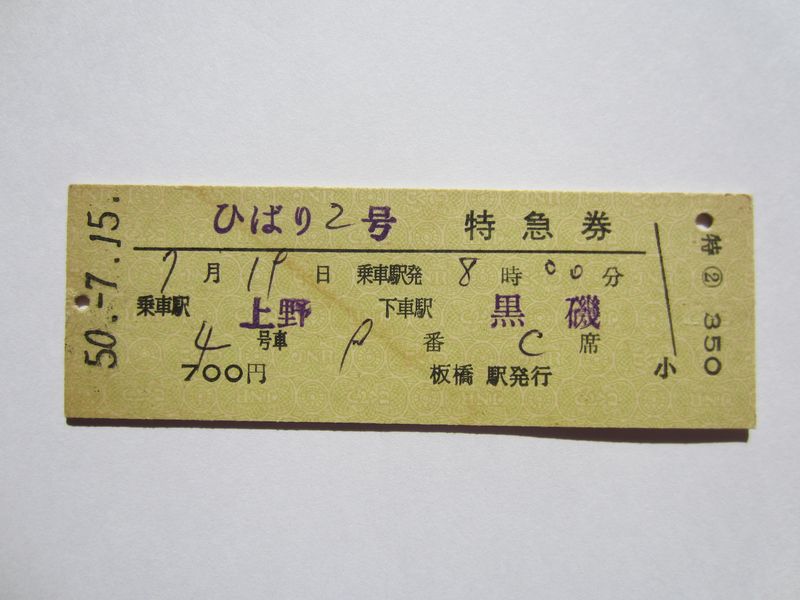 ひばり2号 特急券
7月19日 乗車駅発 8時00分
乗車駅 上野 下車駅 黒磯
4号車 9番 C席
700円 板橋 駅発行
小
特② 350
50.-7.15.